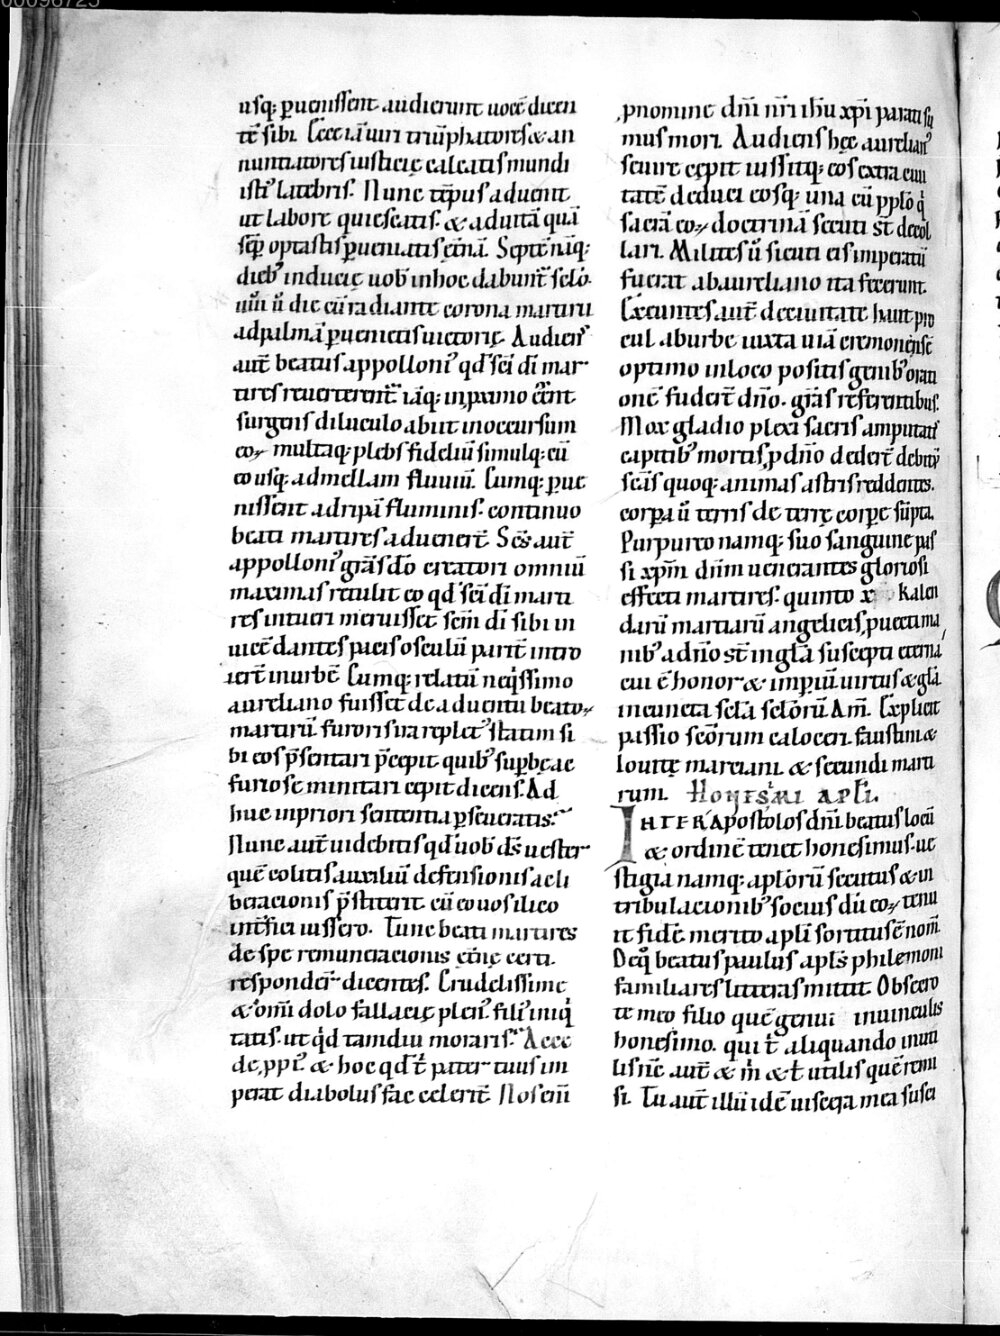 00096725
usq; ꝑuenissent audierunt uocē dicen
tē sibi. Ecce iā uiri triūphatores & an
nuntiatores iusticię calcatis mundi
isti' latebris. Nunc tēpus aduenit
ut labore quiescatis. & ad uitā quā
sēp optastis ꝑueniatis ęt̄nā. Septē nāq;
dieb' inducię uob' in hoc dabunt̄ sclo.
uıı̄ı ū die cū radiante corona martirii
ad palmā ꝑuenietis uictorię. Audiens
aut̄ beatus appolloni' qd̄ sc̄i dī mar
tires reuerterent̄ iāq; in ꝓximo eēnt
surgens diluculo abiit in occursum
eoꝝ multaq; plebs fideliū simulq; cū
eo usq; ad mellam fluuiū. Cumq; ꝑue
nissent ad ripā fluminis. continuo
beati martires aduenert̄. Sc̄s aut̄
appolloni' grās dō creatori omniū
maximas retulit eo qd̄ sc̄i dī marti
res intueri meruisset sc̄m dī sibi in
uicē dantes pacis osculū parit̄ intro
iert̄ in urbē. Cumq; relatū neq̄ssimo
aureliano fuisset de aduentu beatoꝝ
martirū. furoris ira replet' statim si
bi eos p̄sentari p̄cepit quib' suꝑbę ac
furiose minitari cepit dicens. Ad
huc in priori sententia ꝑseueratis?
Nunc aut̄ uidebitis qd̄ uob' dс̄ uester
quē colitis auxiliū defensionis ac li
beracionis p̄stiterit cū eo uos ilico
int̄fici iussero. Tunc beati martires
de spe remunciacionis ęt̄nę certi.
responder̄ dicentes. Crudelissime
& om̄i dolo fallacię plen'. fili' iniq̇
tatis. ut qd̄ tamdiu moraris? Acce
de, ꝓpi'. & hoc qd̄ t̄ pater tuus im
perat diabolus fac celerit̄. Nos em̄
ꝓ nomine dn̄i nr̄i ih̄u xp̄i parati su
mus mori. Audiens hęc aurelian'
seuire cępit iussitq; eos extra ciui
tatē deduci eosq; una cū pplō q̇
sacrā eoꝝ doctrinā secuti st̄ decol
lari. Milites ū sicuti eis imperatū
fuerat ab aureliano ita fecerunt.
Exeuntes aut̄ de ciuitate haut pro
cul ab urbe iuxta uiā cremonēnsē
optimo in loco positis genib' orati
onē fudert̄ dn̄o. grās referentibus.
Mox gladio plexi sacris amputati
capitib' mortis, ꝓ dn̄o dedert̄ debitū
scās quoq; animas astris reddentes.
corꝑa ū terris de terrę corꝑe sūpta.
Purpureo namq; suo sanguine pas
si xp̄m dn̄m uenerantes gloriosi
effecti martires. quinto x kalen
darū martiarū angelicis, puecti ma
nib' ad dn̄o st̄ in glā suscepti eterna
cui ē honor & impiū uirtus & glā
in cuncta scla sclorū Am̄. Explicit
passio sc̄orum caloceri. faustini &
Iouitę marciani. & secundi marti
rum. HONESIMI APLI.
INTER Apostolos dn̄i beatus locū
& ordinē tenet honesimus. ue
stigia namq; aplōrū secutus & in
tribulacionib' socius dū eoꝝ tenu
it fidē merito apli sortitus ē nom̄.
Deq̄ beatus paulus apls philemoni
familiares litteras mittit Obsecro
te meo filio quē genui in uinculis
honesimo. qui t̄ aliquando inuti
lis n̄c aut̄ & m̄ & t̄ utilis quē remi
si. Tu aut̄ illū idē uiscera mea susci